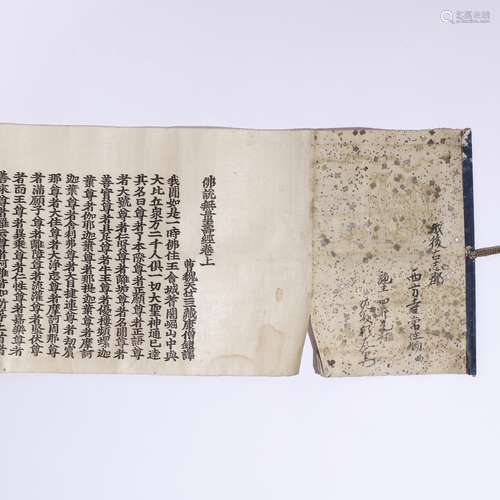 越後古志郡
西方寺常住物
佛說無量壽經卷上
曹魏天竺三藏康僧鎧譯
我聞如是一時佛住王舍城耆闍崛山中與
大比丘衆万二千人俱一切大聖神通已達
其名曰尊者了本際尊者正願尊者正語尊
者大號尊者仁賢尊者離垢尊者名聞尊者
善實尊者具足尊者牛王尊者優樓頻蠡迦
葉尊者伽耶迦葉尊者那提迦葉尊者摩訶
迦葉尊者舍利弗尊者大目揵連尊者劫賓
那尊者大住尊者大淨志尊者摩訶周那尊
者滿願子尊者離障尊者流灌尊者堅伏尊
者面王尊者異乘尊者仁性尊者嘉樂尊者
善來尊者羅云尊者阿難皆如斯等上首者